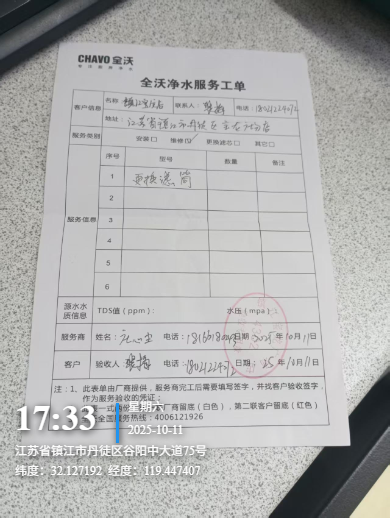 CHAVO 全沃
全沃净水服务工单
客户信息 名称 联系人: 电话:
地址: 江苏省镇江市丹徒区
服务类别 安装□ 维修☑ 更换滤芯□ 其它□
服务信息 序号 型号 数量 备注
1 更换滤筒
2
3
4
5
6
源水水质信息 TDS值(ppm): 水压(mpa):
服务商 姓名: 电话: 日期: 2025年10月11日
客户 验收人 电话: 日期: 25年10月11日
注:1、此表单由厂商提供,服务商完工后需要填写签字,并找客户验收签字,
作为服务验收的凭证;
厂商留底(白色),第二联客户留底(红色)
全国服务热线:4006121926
17:33
星期六
2025-10-11
江苏省镇江市丹徒区谷阳中大道75号
纬度:32.127192 经度:119.447407